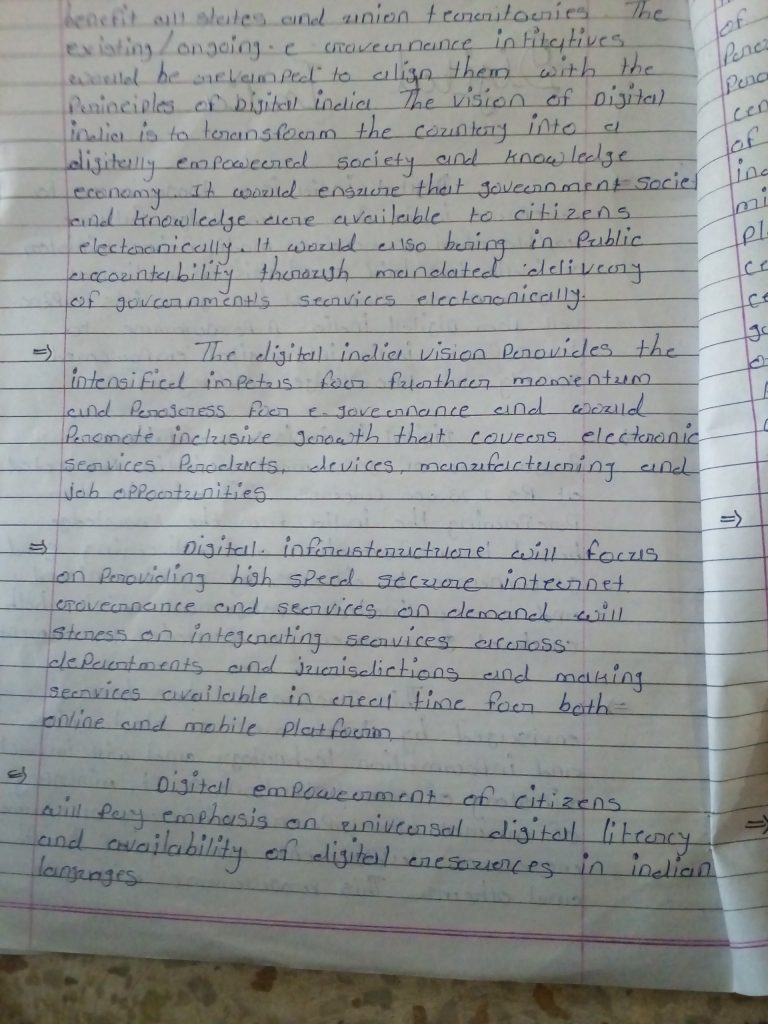 benefit all states and union terrritories. The
existing/ongoing e governance intitatives
would be revamped to align them with the
Principles of Digital india The vision of Digital
india is to transform the country into a
digitally empowered society and knowledge
economy. It would ensure that government societ
and knowledge are available to citizens
electronically. It would also bring in Public
accountability through mandated delivery
of government's services electronically.
⇒ The digital india vision Provides the
intensified impetus for further momentum
and Progress for e. governance and would
Promote inclusive growth that covers electronic
services Products, devices, manufacturing and
job opportunities
⇒ Digital infrastructure will focus
on Providing high speed secure internet
Governance and services on demand will
stress on integrating services across
departments and jurisdictions and making
services available in real time for both
online and mobile Platform
⇒ Digital empowerment of citizens
will Pay emphasis on universal digital literacy
and availability of digital resources in indian
languages